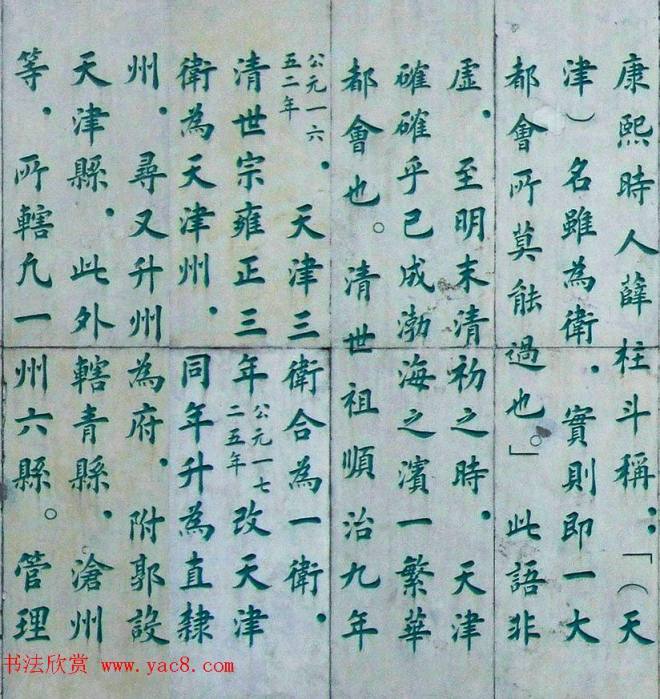 康熙時人薛柱斗稱：「（天
津）名雖為衛，實則即一大
都會所莫能過也。」此語非
虛，至明末清初之時，天津
確確乎已成渤海之濱一繁華
都會也。清世祖順治九年
公元一六五二年，天津三衛合為一衛，
清世宗雍正三年公元一七二五年改天津
衛為天津州，同年升為直隸
州，尋又升州為府，附郭設
天津縣，此外轄青縣，滄州
等，所轄凡一州六縣。管理
书法欣赏 www.yac8.com